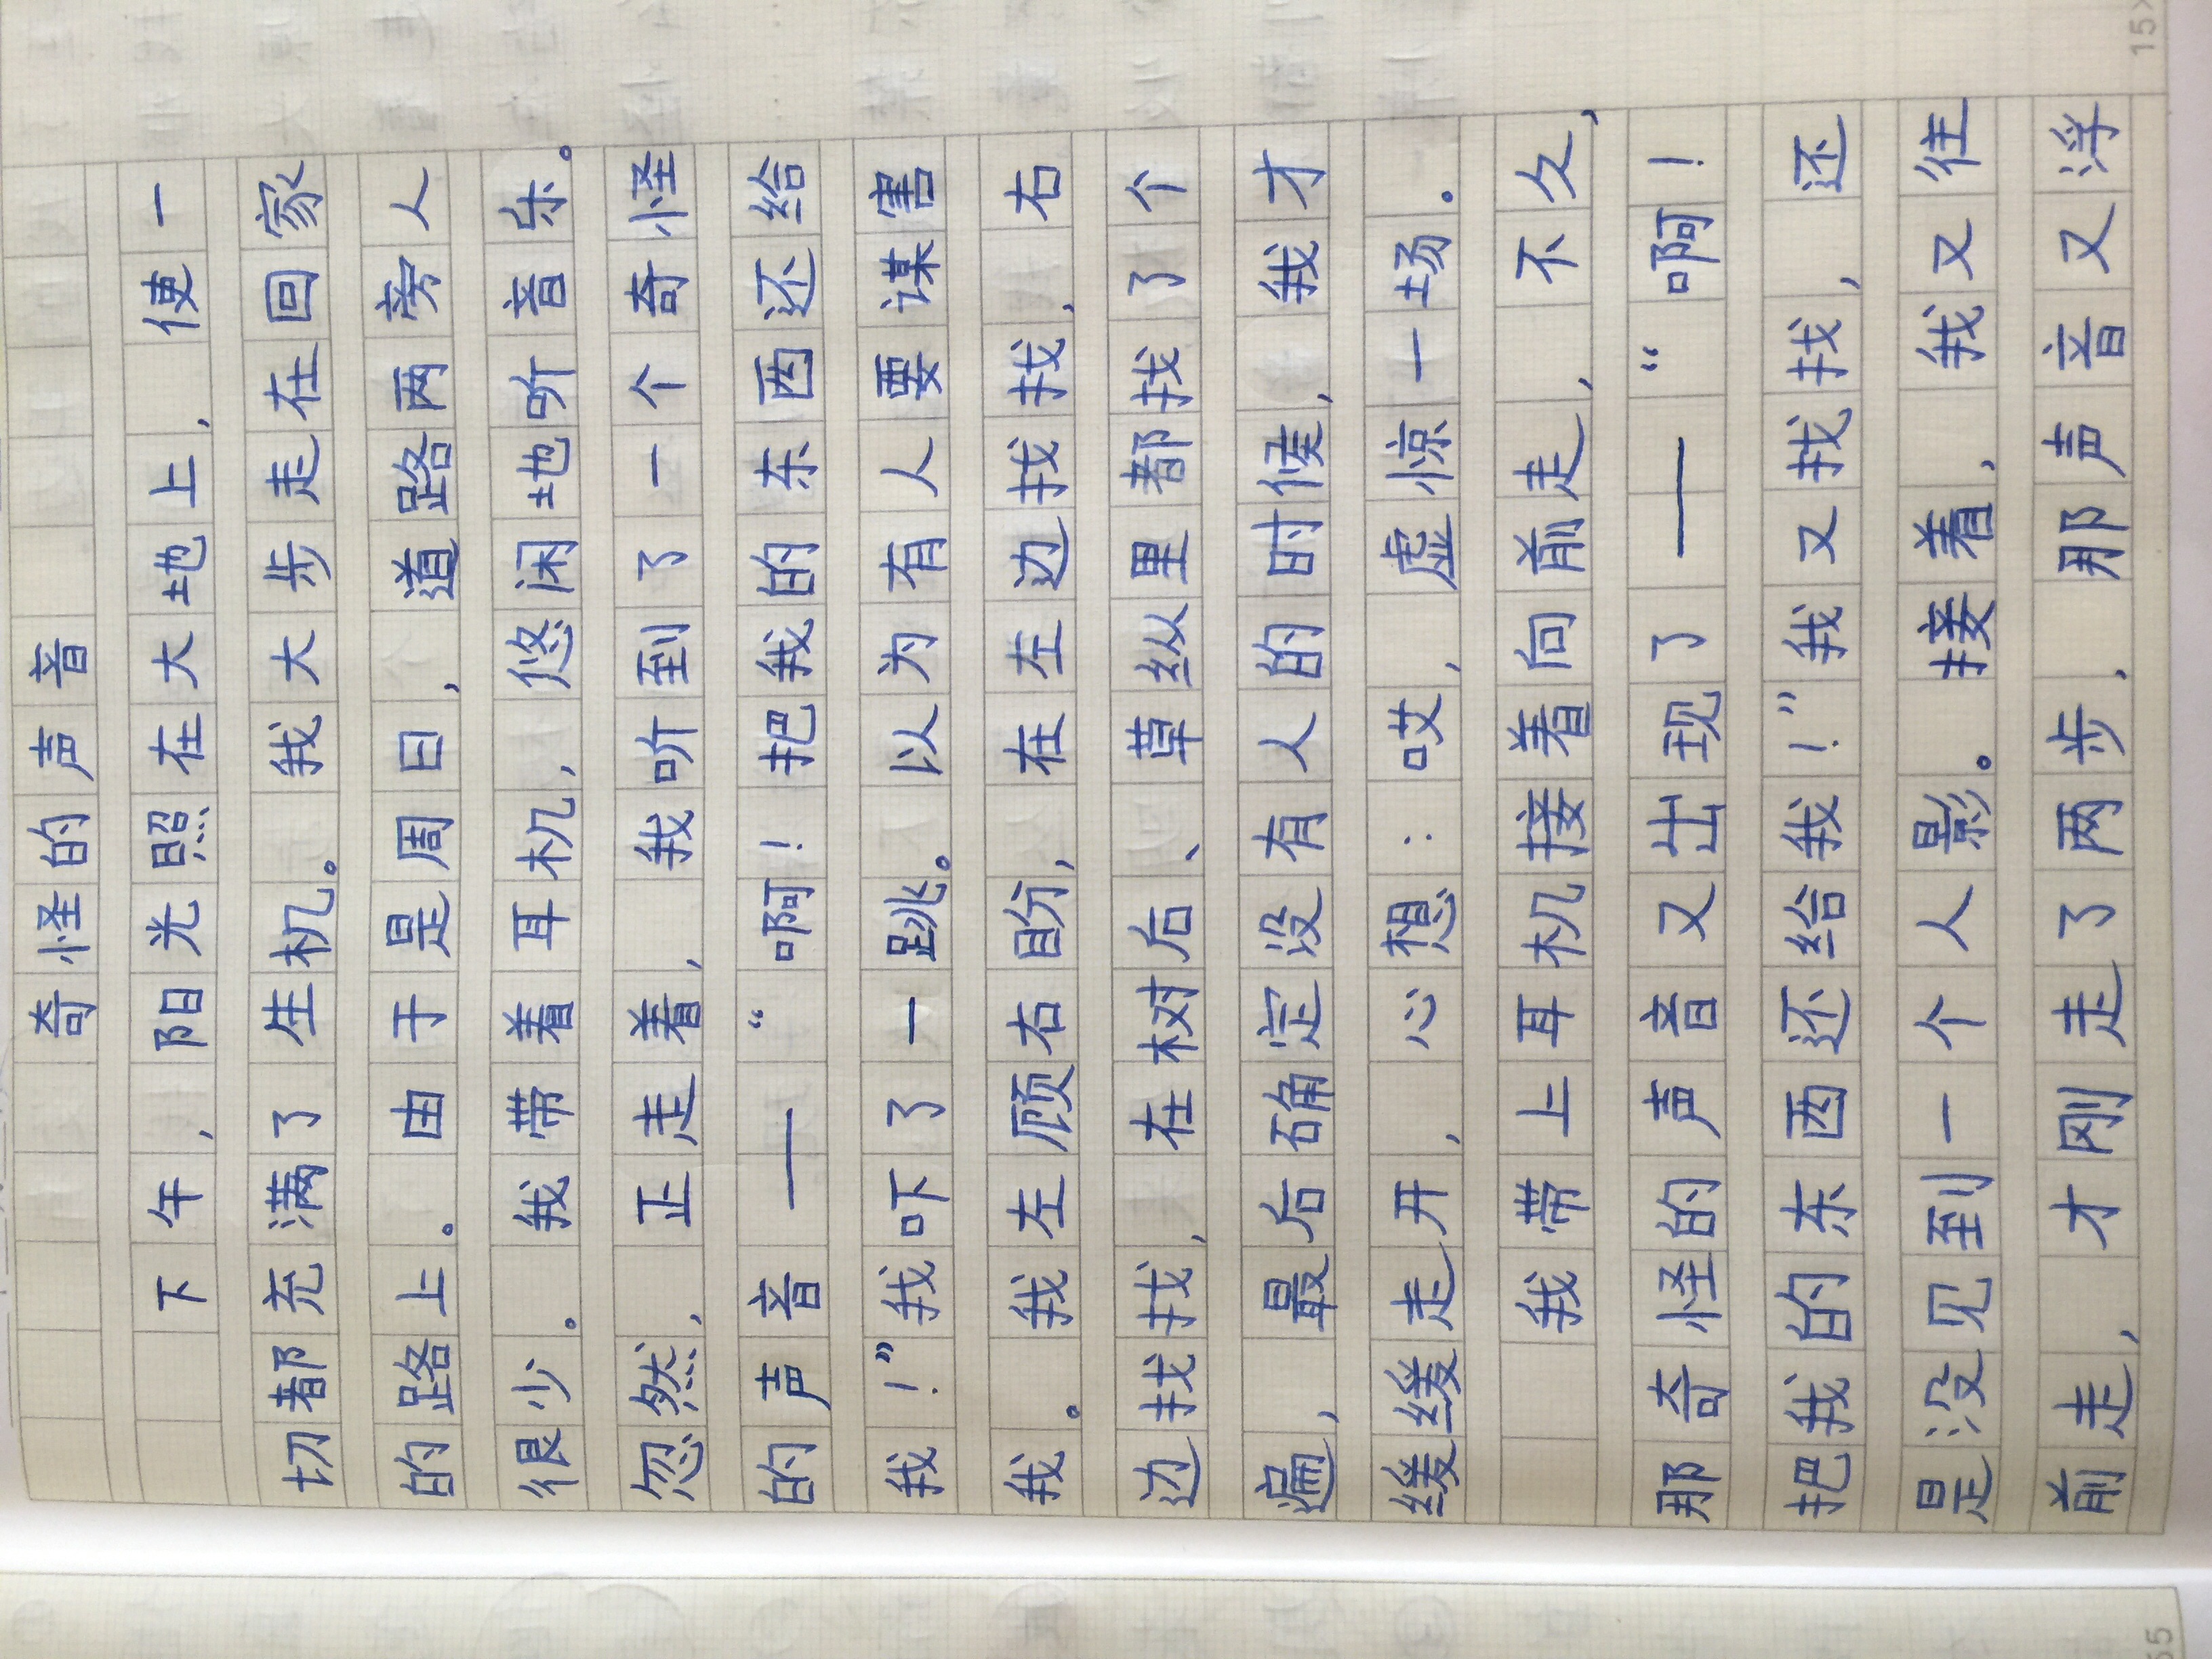 奇怪的声音
下午，阳光照在大地上，使一
切都充满了生机。我大步走在回家
的路上。由于是周日，道路两旁人
很少。我带着耳机，悠闲地听音乐。
忽然，正走着，我听到了一个奇怪
的声音——“啊！把我的东西还给
我！”我吓了一跳。以为有人要谋害
我。我左顾右盼，在左边找找，右
边找找，在树后、草纵里都找了个
遍，最后确定没有人的时候，我才
缓缓走开，心想：哎，虚惊一场。
我带上耳机接着向前走，不久，
那奇怪的声音又出现了——“啊！
把我的东西还给我！”我又找找，还
是没见到一个人影。接着，我又往
前走，才刚走了两步，那声音又浮